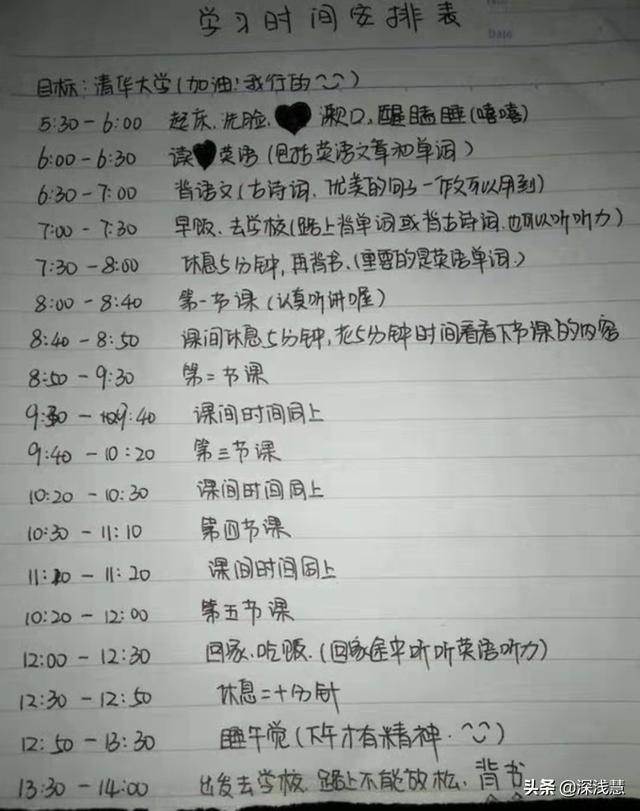 学习时间安排表
Date
目标:清华大学(加油!我行的)
5:30-6:00 起床、洗脸、漱口,醒瞌睡(嘻嘻)
6:00-6:30 读英语(包括英语文章和单词)
6:30-7:00 背语文(古诗词、优美的句子-作文可以用到)
7:00-7:30 早饭、去学校(路上背单词或背古诗词.也可以听听力)
7:30-8:00 休息5分钟,再背书、(重要的是英语单词.)
8:00-8:40 第一节课(认真听讲喔)
8:40-8:50 课间休息5分钟,花5分钟时间看看下节课的内容
8:50-9:30 第二节课
9:30-9:40 课间时间同上
9:40-10:20 第三节课
10:20-10:30 课间时间同上
10:30-11:10 第四节课
11:10-11:20 课间时间同上
10:20-12:00 第五节课
12:00-12:30 回家.吃饭.(回家途中听听英语听力)
12:30-12:50 休息二十分钟
12:50-13:30 睡午觉(下午才有精神.)
13:30-14:00 出发去学校.路上不能放松、背书
头条 @深浅慧